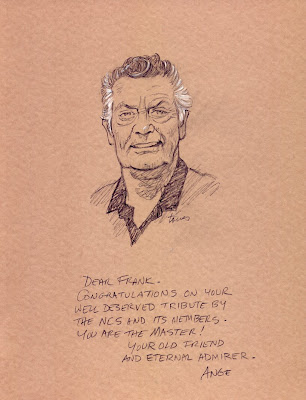 DEAR FRANK.
CONGRATULATIONS ON YOUR
WELL DESERVED TRIBUTE BY
THE NCS AND ITS MEMBERS.
YOU ARE THE MASTER!
YOUR OLD FRIEND
AND ETERNAL ADMIRER.
ANGE